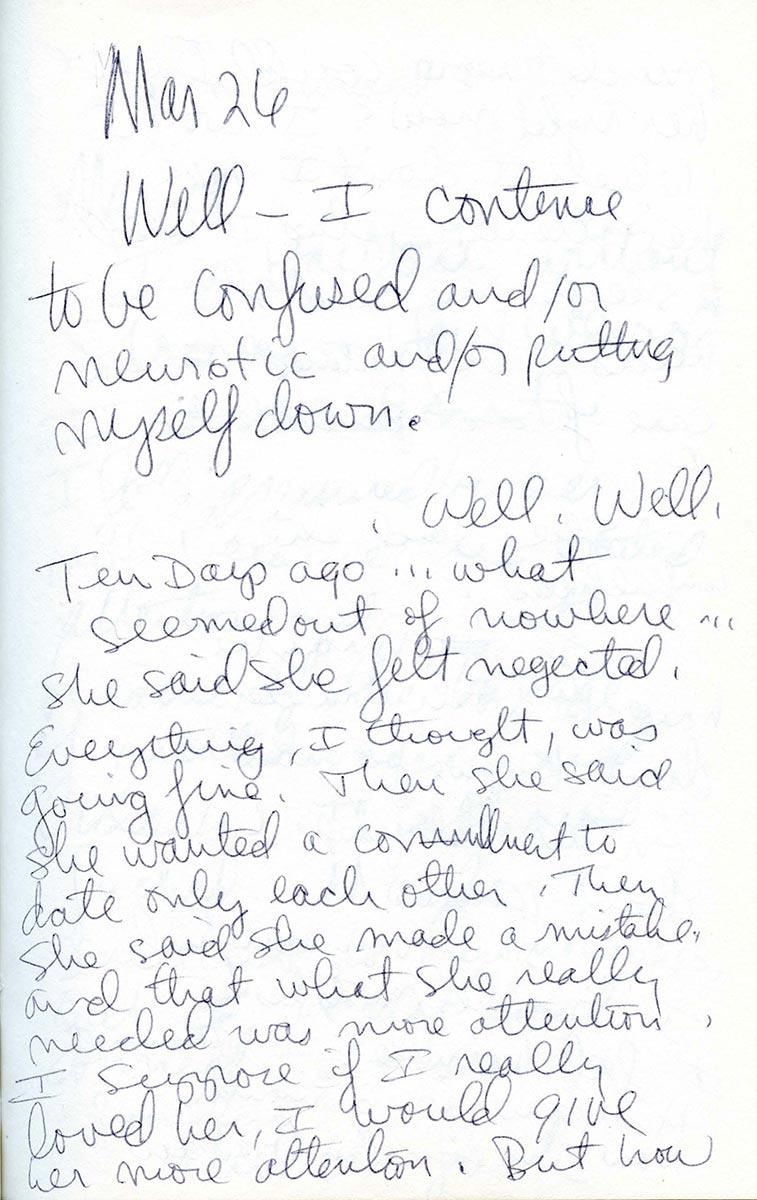 Mar 26
Well – I contenue
to be confused and/or
neurotic and/or putting
myself down.
Well. Well.
Ten Days ago ... what
seemed out of nowhere ...
she said she felt negected.
Everything, I thought, was
going fine. Then she said
she wanted a commitment to
date only each other. Then
she said she made a mistake.
and that what she really
needed was more attention.
I suppose if I really
loved her, I would give
her more attention. But how